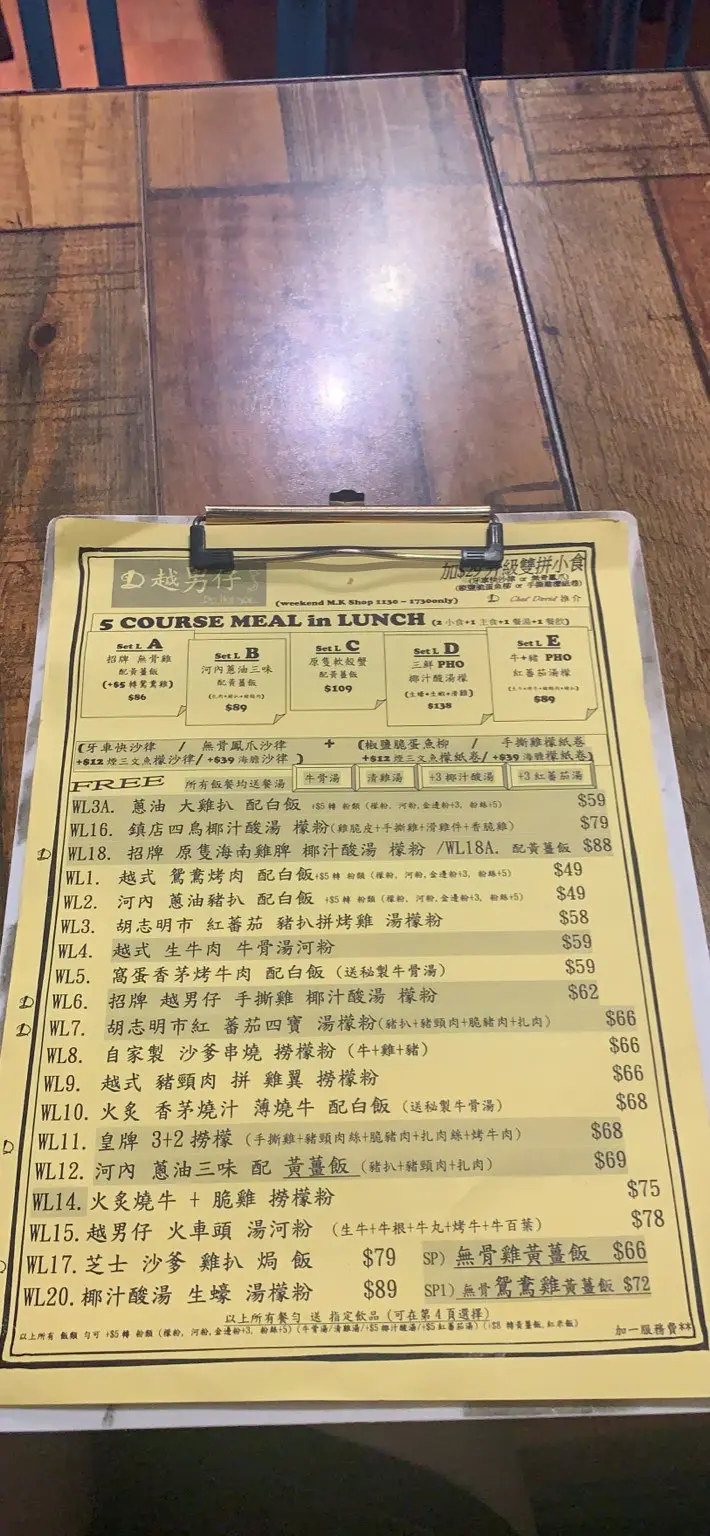 越男仔
加$29升級雙拼小食
(weekend M.K Shop 1130 - 1730only)
Chef David 推介
5 COURSE MEAL in LUNCH (2 小食+1 主食+1 餐湯+1 餐飲)
Set L A
招牌 無骨雞
配黃薑飯
(+$5 轉鴛鴦雞)
$86
Set L B
河內蔥油三味
配黃薑飯
$89
Set L C
原隻軟殼蟹
配黃薑飯
$109
Set L D
三鮮 PHO
椰汁酸湯檬
(生蠔+生蝦+清雞)
$138
Set L E
牛+豬 PHO
紅蕃茄湯檬
$89
(牙車快沙律 / 無骨鳳爪沙律 + (椒鹽脆蛋魚柳 / 手撕雞檬紙卷
+$12 煙三文魚檬沙律/ +$39 海膽沙律 ) +$12 煙三文魚檬紙卷/ +$39 海膽檬紙卷)
FREE 所有飯餐均送餐湯 牛骨湯 清雞湯 +3 椰汁酸湯 +3 紅蕃茄湯
WL3A. 蔥油 大雞扒 配白飯 +$5 轉 粉類 (檬粉, 河粉,金邊粉+3, 粉絲+5) $59
WL16. 鎮店四鳥椰汁酸湯 檬粉(雞脆皮+手撕雞+滑雞件+香脆雞) $79
WL18. 招牌 原隻海南雞髀 椰汁酸湯 檬粉 /WL18A. 配黃薑飯 $88
WL1. 越式 鴛鴦烤肉 配白飯+$5 轉 粉類 (檬粉, 河粉,金邊粉+3, 粉絲+5) $49
WL2. 河內 蔥油豬扒 配白飯 +$5 轉 粉類 (檬粉, 河粉,金邊粉+3, 粉絲+5) $49
WL3. 胡志明市 紅蕃茄 豬扒拼烤雞 湯檬粉 $58
WL4. 越式 生牛肉 牛骨湯河粉 $59
WL5. 窩蛋香茅烤牛肉 配白飯 (送秘製牛骨湯) $59
WL6. 招牌 越男仔 手撕雞 椰汁酸湯 檬粉 $62
WL7. 胡志明市紅 蕃茄四寶 湯檬粉(豬扒+豬頸肉+脆豬肉+扎肉) $66
WL8. 自家製 沙爹串燒 撈檬粉 (牛+雞+豬) $66
WL9. 越式 豬頸肉 拼 雞翼 撈檬粉 $66
WL10. 火炙 香茅燒汁 薄燒牛 配白飯 (送秘製牛骨湯) $68
WL11. 皇牌 3+2 撈檬 (手撕雞+豬頸肉絲+脆豬肉+扎肉絲+烤牛肉) $68
WL12. 河內 蔥油三味 配 黃薑飯 (豬扒+豬頸肉+扎肉) $69
WL14. 火炙燒牛 + 脆雞 撈檬粉 $75
WL15. 越男仔 火車頭 湯河粉 (生牛+牛根+牛丸+烤牛+牛百葉) $78
WL17. 芝士 沙爹 雞扒 焗 飯 $79 SP) 無骨雞黃薑飯 $66
WL20. 椰汁酸湯 生蠔 湯檬粉 $89 SP1) 無骨鴛鴦雞黃薑飯 $72
以上所有餐勻 送 指定飲品 (可在第4頁選擇)
以上所有 飯類 勻可 +$5 轉 粉類 (檬粉, 河粉,金邊粉+3, 粉絲+5) (牛骨湯/清雞湯/+$5 椰汁酸湯/+$5 紅蕃茄湯) (+$8 轉黃薑飯,紅米飯) 加一服務費**